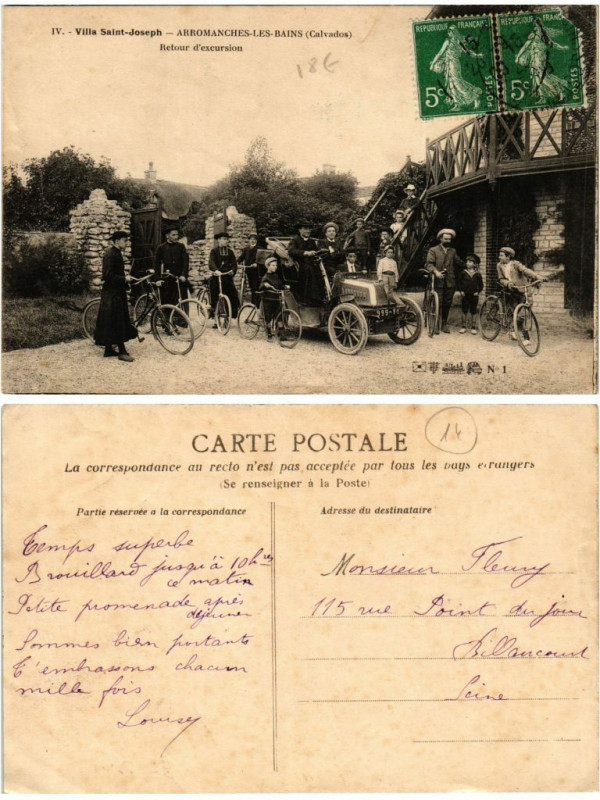 IV. - Villa Saint-Joseph — ARROMANCHES-LES-BAINS (Calvados)
Retour d'excursion
18€
REPUBLIQUE FRANÇAISE
5c
REPUBLIQUE FRANÇAISE
5c
N 1
14
CARTE POSTALE
La correspondance au recto n'est pas acceptée par tous les pays etrangers
(Se renseigner à la Poste)
Partie réservée à la correspondance
Adresse du destinataire
Temps superbe
Brouillard jusqu'à 10h
ce matin
Petite promenade après
déjeuner
Sommes bien portants
T'embrassons chacun
mille fois
Louisy
Monsieur Fleury
115 rue Point du jour
Billancourt
Seine